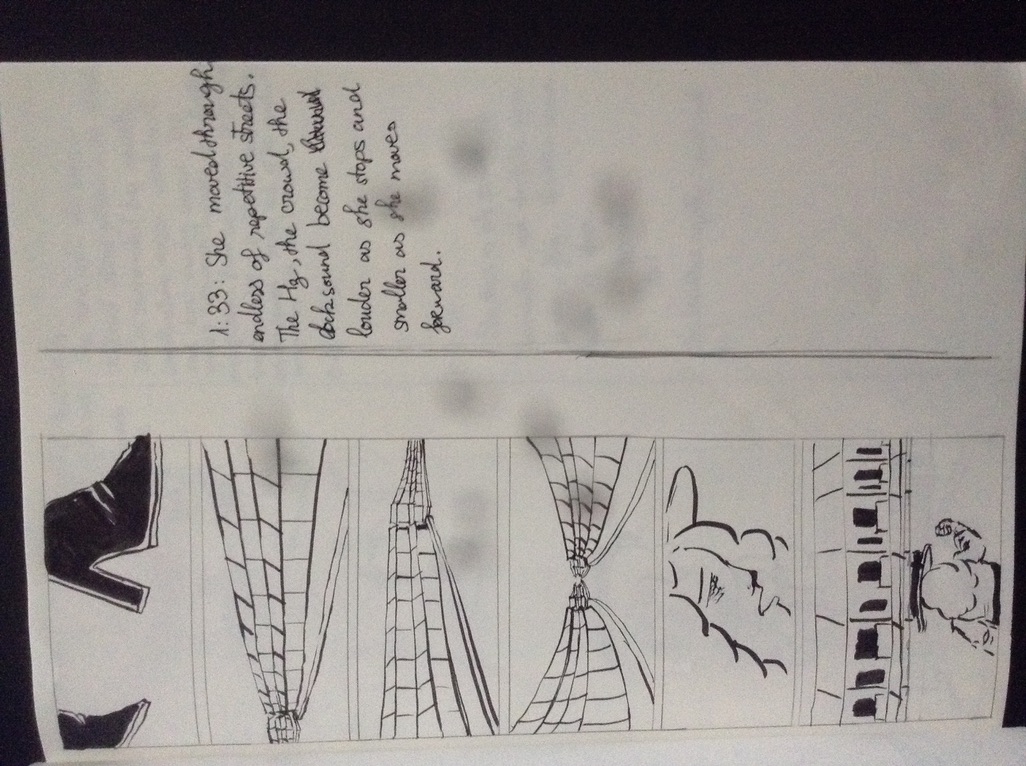 1:33: She moved through
endless of repetitive streets.
The Hz, the crowd, the
sound become
louder as she stops and
smaller as she moves
forward.